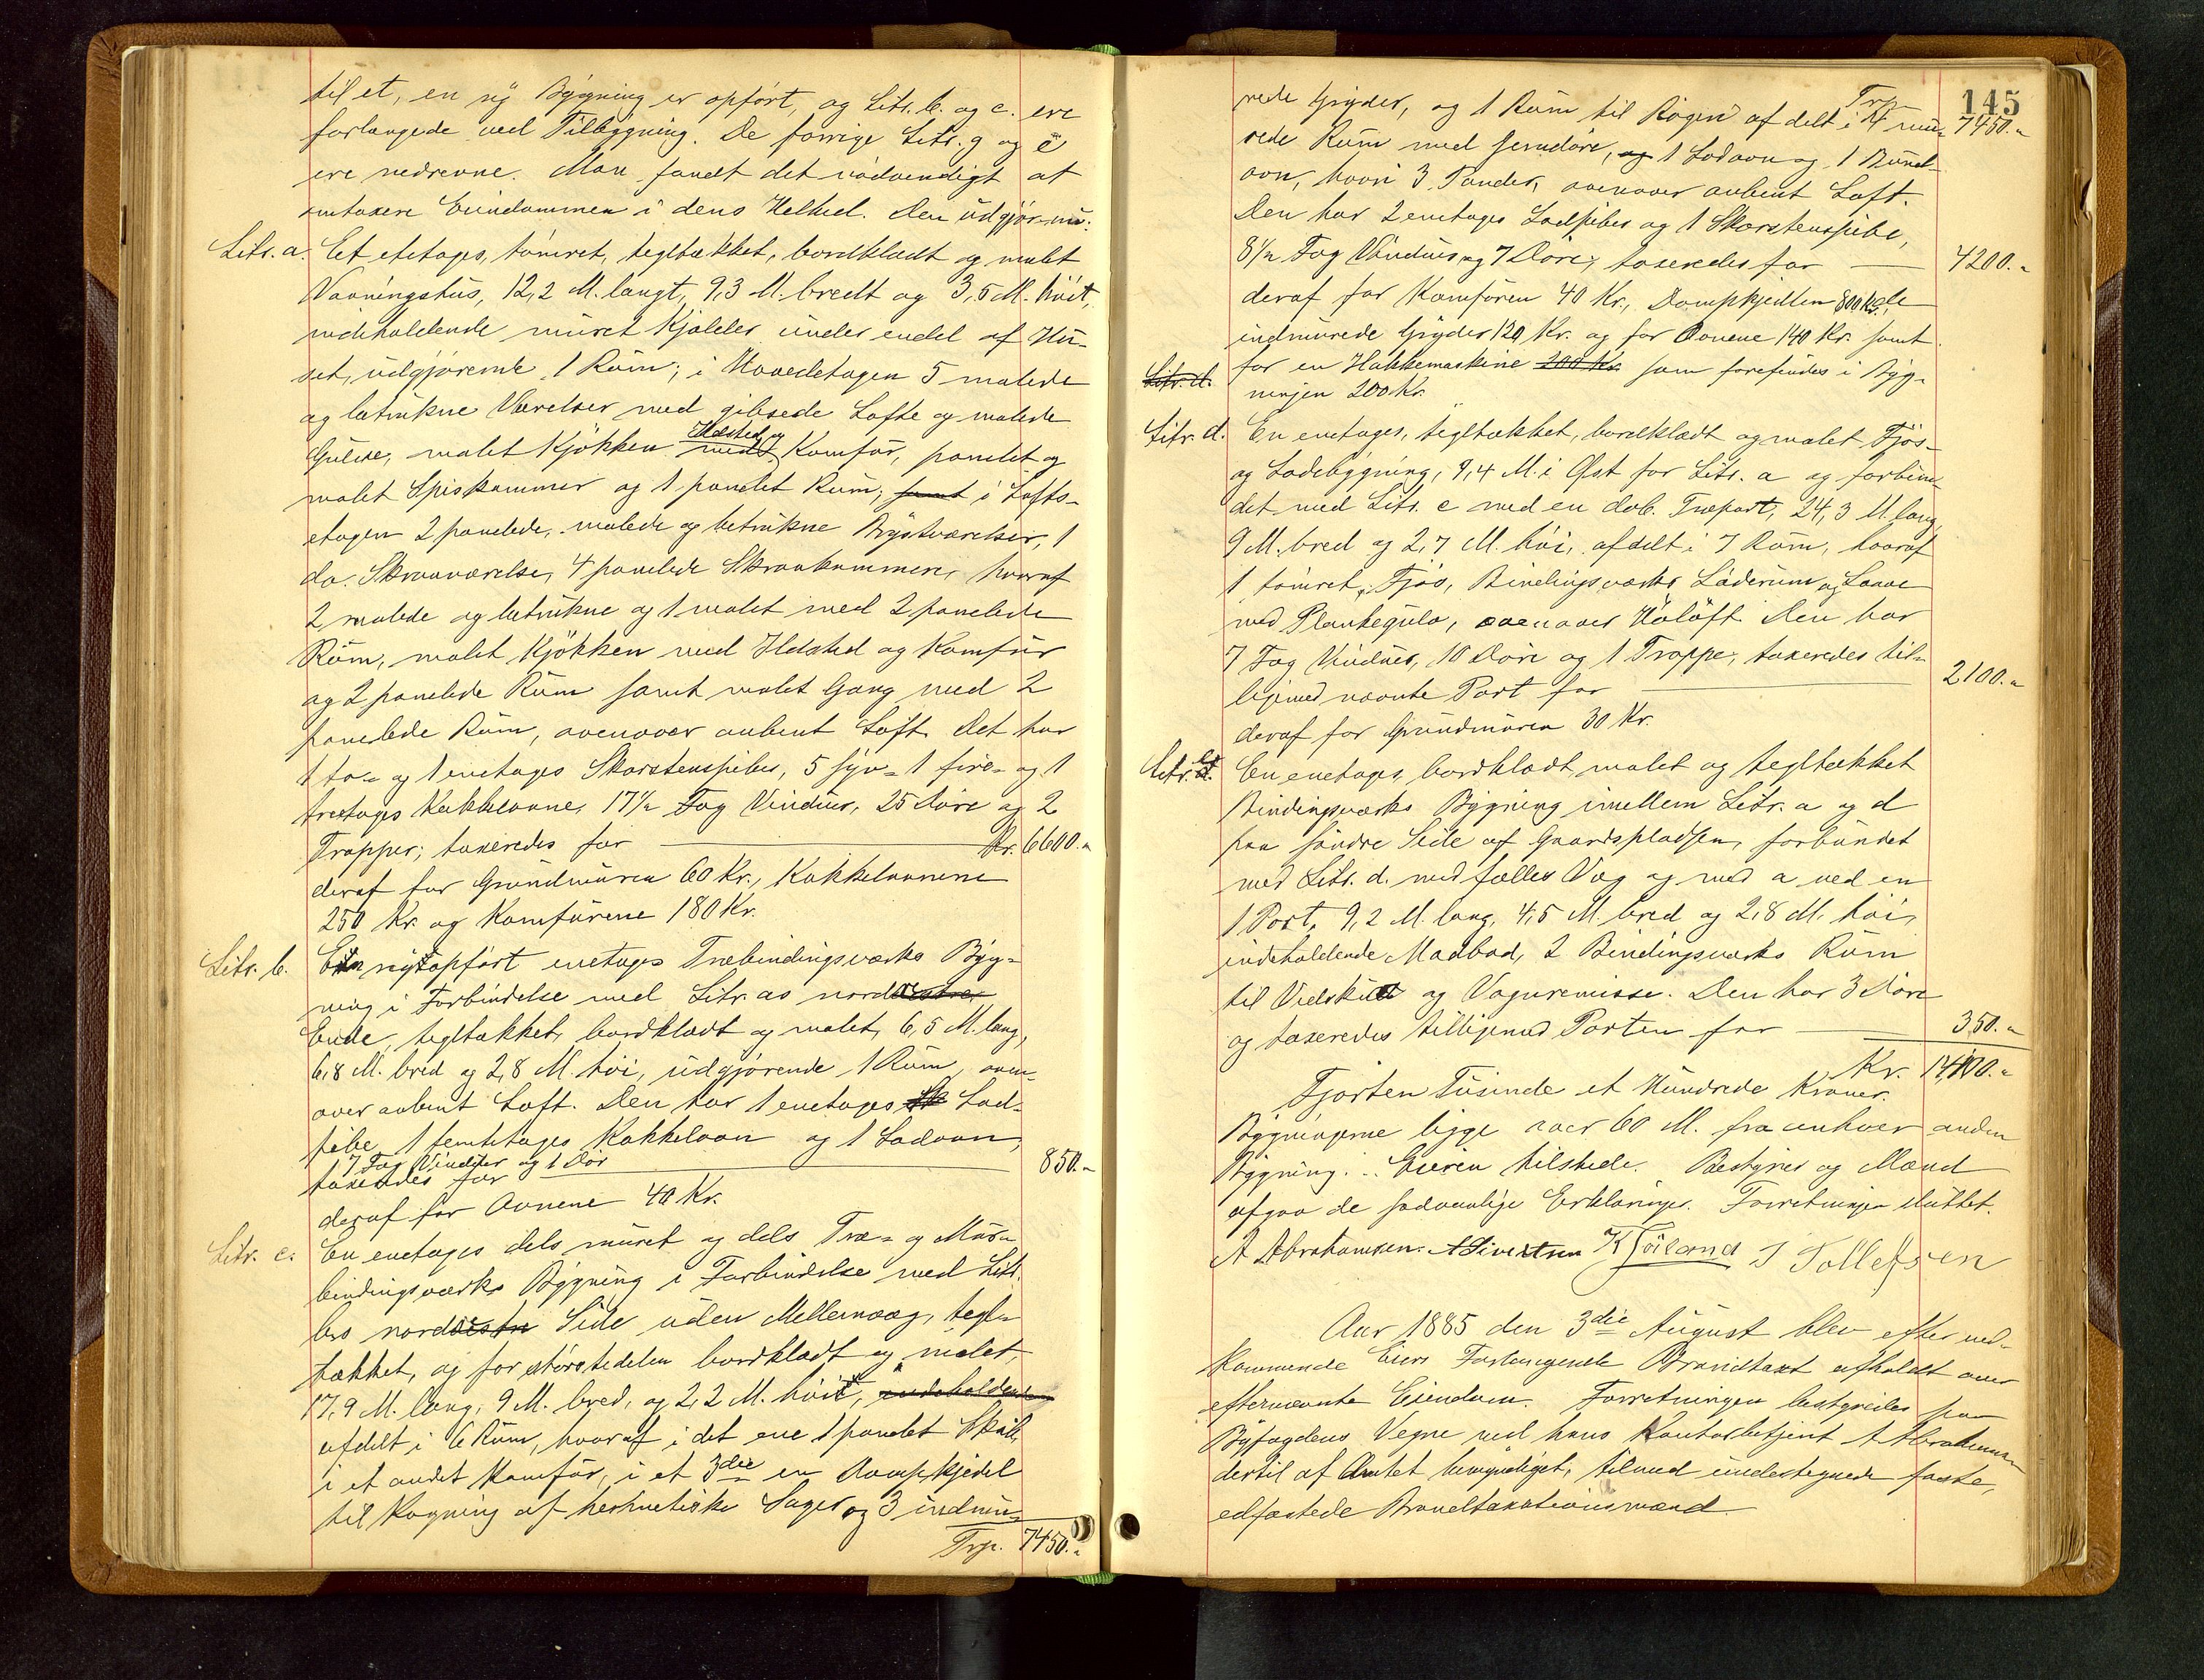 til et, en ny Bygning er opført, og Litr. b. og c. ere
forlængede ved Tilbygning. De forrige Litr. g og e
ere nedrevne. Man fandt det nødvendigt at
omtaxere Eiendommen i dens Helhed. Den udgjør nu:
Litr. a. Et etetages, tømret, tegltækket, bordklædt og malet
Vaaningshus, 12,2 M. langt, 9,3 M. bredt og 3,5 M. høit,
indeholdende muret Kjælder under endel af Hu-
set, udgjørende 1 Rum; i Hovedetagen 5 malede
og betrukne Værelser med gibsede Lofte og malede
Gulve, malet Kjøkken med Ildsted og Komfur, panelet og
malet Spiskammer og 1 panelet Rum; samt i Lofts-
etagen 2 panelede, malede og betrukne Kvistværelser, 1
do. Skraaværelse, 4 panelede Skraakammere, hvoraf
2 malede og betrukne og 1 malet med 2 panelede
Rum, malet Kjøkken med Ildsted og Komfur
og 2 panelede Rum samt malet Gang med 2
panelede Rum, ovenover aabent Loft. Det har
1 to- og 1 enetages Skorstenspiber, 5 syv- 1 fire- og 1
treetages Kakkelovne, 17 1/2 Fag Vinduer, 25 Døre og 2
Trapper; taxeredes for Kr. 6600.-
deraf for Grundmuren 60 Kr., Kakkelovnene
250 Kr. og Komfurene 180 Kr.
Litr. b. En nyopført enetages Træbindingsværks Byg-
ning i Forbindelse med Litr. as nordøstre
Ende, tegltækket, bordklædt og malet, 6,5 M. lang,
6,8 M. bred og 2,8 M. høi, udgjørende 1 Rum, oven-
over aabent Loft. Den har 1 enetages Lad-
pibe, 1 femtetages Kakkelovn og 1 Ladovn,
7 Fag Vinduer og 1 Dør
taxeredes for 850.-
deraf for Ovnene 40 Kr.
Litr. c. En enetages dels muret og dels Træ- og Mur-
bindingsværks Bygning i Forbindelse med Litr.
bs nordøstre Side uden Mellemvæg, tegl-
tækket, og for størstedelen bordklædt og malet,
17,9 M. lang, 9 M. bred, og 2,2 M. høi, indeholdende
afdelt i 6 Rum, hvoraf i det ene 1 panelet Skab,
i et andet Komfur, i et 3die en Dampkjedel
til Kogning af hermetiske Sager og 3 indmu-
Trp. 7450.-
145
Trp. 7450.-
rede Gryder, og 1 Rum til Røgeri afdelt i 4 mu-
rede Rum med Jerndøre, og 1 Ladovn og 1 Bund-
ovn, hvori 3 Pander, ovenover aabent Loft.
Den har 2 enetages Ladpiber og 1 Skorstenspibe,
8 1/2 Fag Vinduer og 7 Døre; taxeredes for 4200.-
deraf for Komfuren 40 Kr., Dampkjedlen 800 Kr., de
indmurede Gryder 120 Kr. og for Ovnene 140 Kr. samt
Litr. d. for en Hakkemaskine 200 Kr. som forefindes i Byg-
ningen 200 Kr.
Litr. d. En enetages, tegltækket, bordklædt og malet Fjøs-
og Ladebygning, 9,4 M. i Øst for Litr. a og forbun-
det med Litr. c med en dob. Træport, 24,3 M. lang,
9 M. bred og 2,7 M. høi, afdelt i 7 Rum, hvoraf
1 tømret Fjøs, Bindingsværks Laderum og Laave
med Plankegulv, ovenover Høloft. Den har
7 Fag Vinduer, 10 Døre og 1 Trappe, taxeredes til-
ligemed nævnte Port for 2100.-
deraf for Grundmuren 30 Kr.
Litr. e. En enetages bordklædt, malet og tegltækket
Bindingsværks Bygning imellem Litr. a og d
paa søndre Side af Gaardspladsen, forbundet
med Litr. d. med fælles Væg og med a ved en
1 Port, 9,2 M. lang, 4,5 M. bred og 2,8 M. høi,
indeholdende Madbod, 2 Bindingsværks Rum
til Vedskur og Vognremisse. Den har 3 Døre
og taxeredes tilligemed Porten for 350.-
Kr. 14,100.-
Fjorten Tusinde et Hundrede Kroner.
Bygningerne ligge over 60 M. fra enhver anden
Bygning. Eieren tilstede. Bestyrer og Mænd
afgav de sædvanlige Erklæringer. Forretningen sluttet.
A Abrahamsen. A Sivertsen K Tøiland T Tollefsen
Aar 1885 den 3die August blev efter ved-
kommende Eiers Forlangende Brandtaxt afholdt over
efternævnte Eiendom. Forretningen bestyredes paa
Byfogdens Vegne ved hans Kontorbetjent A Abrahamsen
dertil af Amtet bemyndiget, tilmed undertegnede faste,
edfæstede Brandtaxationsmænd.